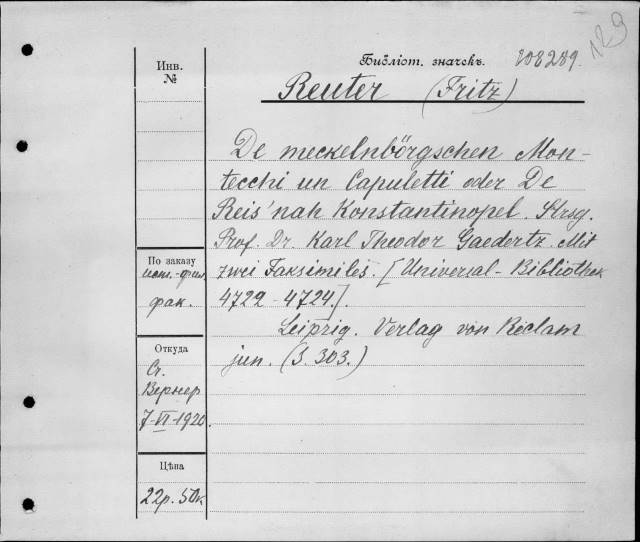 129
Библіот. значекъ. 208289.
Инв.
№
Reuter (Fritz)
De meckelnbörgschen Mon-
tecchi un Capuletti oder De
Reis' nah Konstantinopel. Hrsg.
Prof. Dr. Karl Theodor Gaedertz. Mit
zwei Faksimiles. [Universal-Bibliothek
4722-4724].
Leipzig. Verlag von Reclam
jun. (S. 303.)
По заказу
ист.-фил.
фак.
Откуда
Ст.
Вернер
7-VI-1920.
Цѣна
22р. 50к